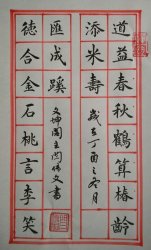 道益春秋鶴算椿齡
添米壽
歲在丁酉之冬月
德合金石桃言李笑
匯成蹊
文坤閣主文書